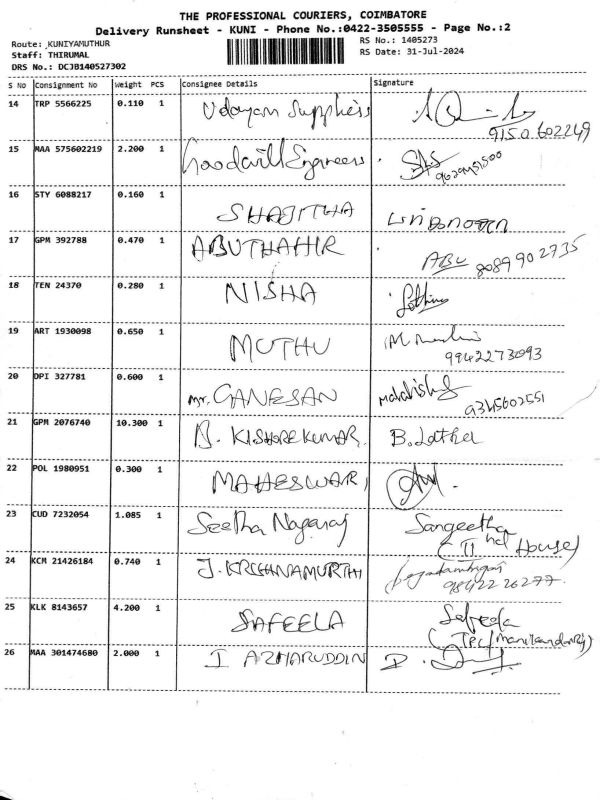 THE PROFESSIONAL COURIERS, COIMBATORE
Delivery Runsheet - KUNI - Phone No.:0422-3505555 - Page No.:2
Route: KUNIYAMUTHUR
RS No.: 1405273
Staff: THIRUMAL
RS Date: 31-Jul-2024
DRS No.: DCJB140527302
S No Consignment No Weight PCS Consignee Details Signature
14 TRP 5566225 0.110 1 Udayam Suppliers
9150602249
15 MAA 575602219 2.200 1 Goodwill Engineers
16 STY 6088217 0.160 1 SHAJITHA
17 GPM 392788 0.470 1 ABUTHAHIR ABU
8089902735
18 TEN 24370 0.280 1 NISHA
19 ART 1930098 0.650 1 MUTHU
9942273093
20 DPI 327781 0.600 1 Mr. GANESAN
9345602551
21 GPM 2076740 10.300 1 B. KISHORE KUMAR. B. Latha
22 POL 1980951 0.300 1 MAHESWARI
23 CUD 7232054 1.085 1 Seetha Nagaraj Sangeetha
(II nd House)
24 KCM 21426184 0.740 1 J. KRISHNAMURTHI
9842226277
25 KLK 8143657 4.200 1 SAFEELA Safeela
26 MAA 301474680 2.000 1 I AZHARUDDIN